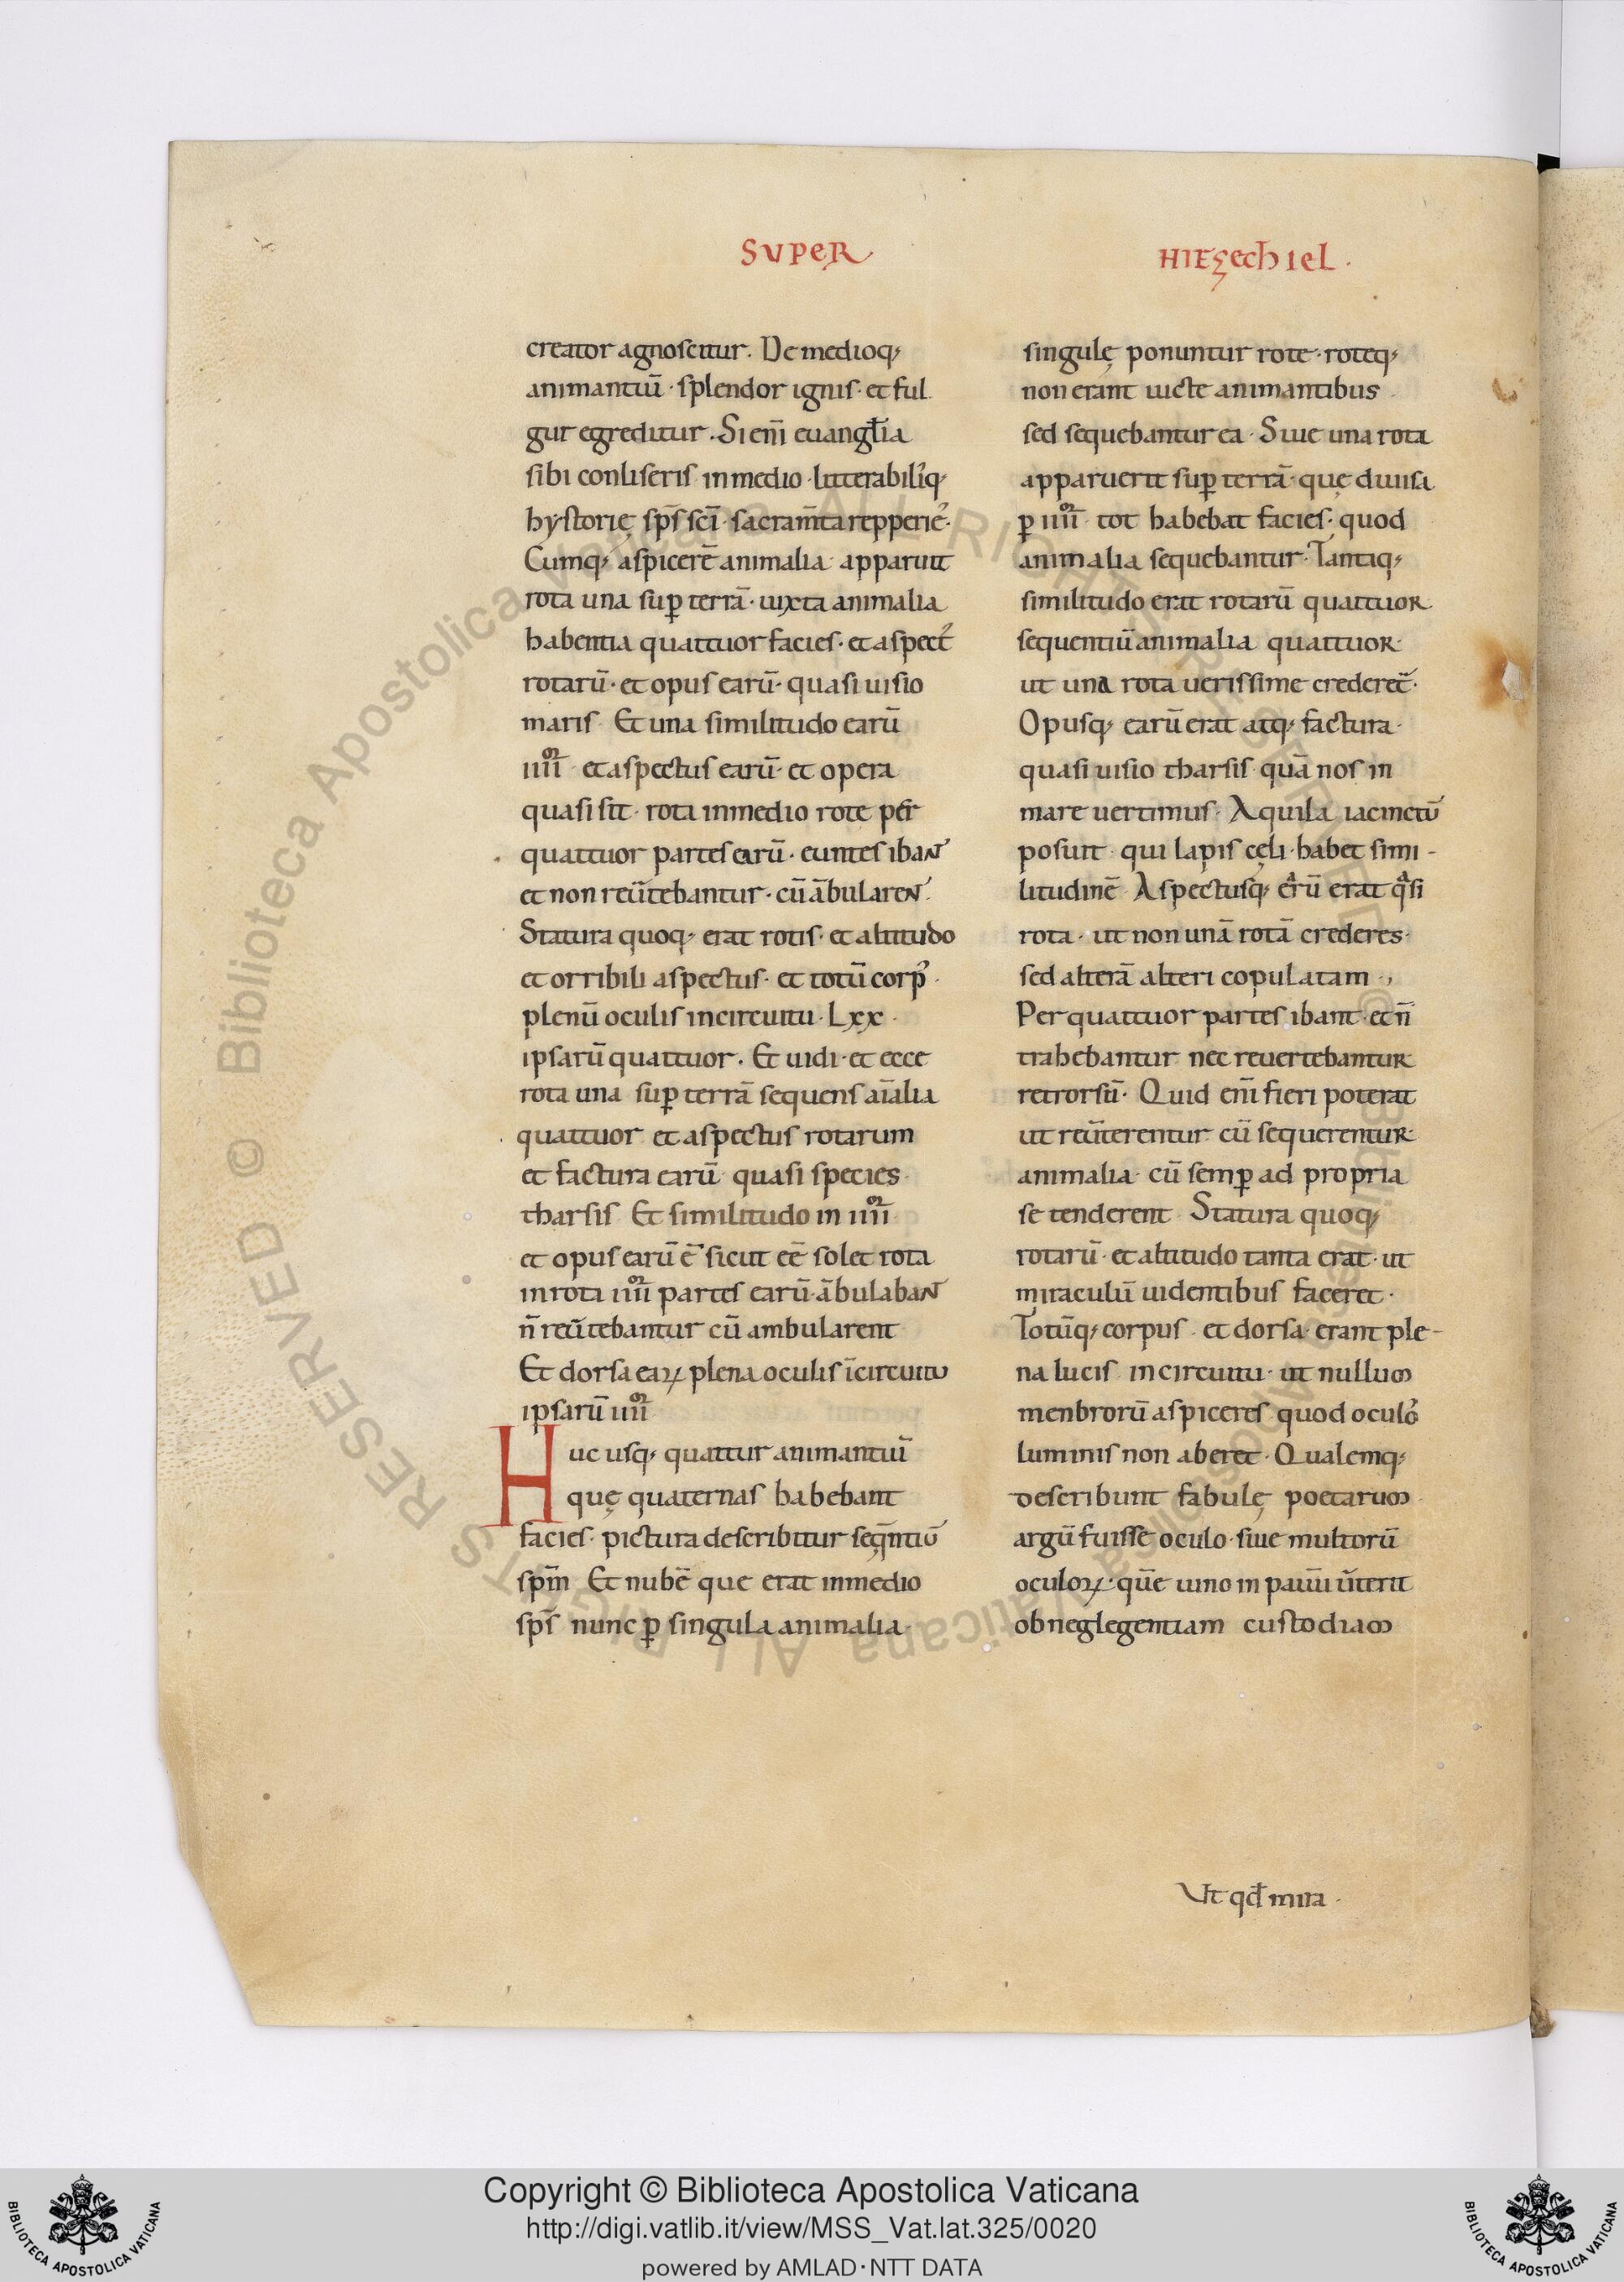 SUPER
HIEZECHIEL ·
creator agnoscitur. De medioq;
animantiū · splendor ignis · et ful
gur egreditur. Si eni̅ euangl̅ia
sibi conliseris in medio · litterabiliq;
hystorię sps̄ sc̄i · sacram̄ta repperie᷒·
Cumq; aspicerē animalia · apparuit
rota una sup̱ terrā · iuxta animalia
habentia quattuor facies · et aspect᷒
rotarū · et opus earū · quasi uisio
maris Et una similitudo earū
iiiior et aspectus earū · et opera
quasi sit · rota in medio rote per
quattuor partes earū · euntes ibant
et non reūtebantur · cū ābularent.
Statura quoq; erat rotis · et altitudo
et orribili aspectus · et totū corp᷒ ·
plenū oculis incircuitu · Lxx ·
ipsarū quattuor. Et uidi · et ecce
rota una sup̱ terrā sequens aīalia
quattuor et aspectus rotarum
et factura earū quasi species
tharsis Et similitudo in iiiior
et opus earū ē sicut eē solet rota
in rota iiiior partes earū ābulabant
n̄ reūtebantur cū ambularent
Et dorsa eaꝝ plena oculis īcircuitu
ipsarū iiiior
Huc usq; quattur animantiū
quę quaternas habebant
facies · pictura describitur seq̄ntiū
spm̄ Et nubē que erat in medio
sps̄ nunc ꝑ singula animalia ·
singulę ponuntur rote · roteq;
non erant iucte animantibus
sed sequebantur ea · Siue una rota
apparuerit sup̱ terrā · quę diuisa
ꝑ iiiior tot habebat facies · quod
animalia sequebantur · Tantiq;
similitudo erat rotarū quattuor
sequentiū animalia quattuor ·
ut una rota uerissime crederet᷒·
Opusq; earū erat atq; factura ·
quasi uisio tharsis quā nos in
mare uertimus · Aquila iacinctū
posuit qui lapis cęli · habet simi-
litudinē Aspectusq; eārū erat qᵃsi
rota · ut non unā rotā crederes ·
sed alterā alteri copulatam ·,
Per quattuor partes ibant · et n̄
trahebantur nec reuertebantur
retrorsū · Quid eni̅ fieri poterat
ut reūterentur cū sequerentur
animalia · cū semꝑ ad propria
se tenderent Statura quoq;
rotarū · et altitudo tanta erat · ut
miraculū uidentibus faceret ·
Totūq; corpus · et dorsa · erant ple-
na lucis incircuitu · ut nullum
menbrorū aspiceres quod oculo᷒
luminis non aberet · Qualemq;
describunt fabulę poetarum
argū fuisse oculo · siue multorū
oculoꝝ · que᷒ iuno in pauū ūterit
ob neglegentiam custodiam
Ut qd̄ mira ·
Biblioteca Apostolica Vaticana ALL RIGHTS RESERVED ©
Copyright © Biblioteca Apostolica Vaticana
http://digi.vatlib.it/view/MSS_Vat.lat.325/0020
powered by AMLAD · NTT DATA
BIBLIOTECA APOSTOLICA VATICANA
BIBLIOTECA APOSTOLICA VATICANA